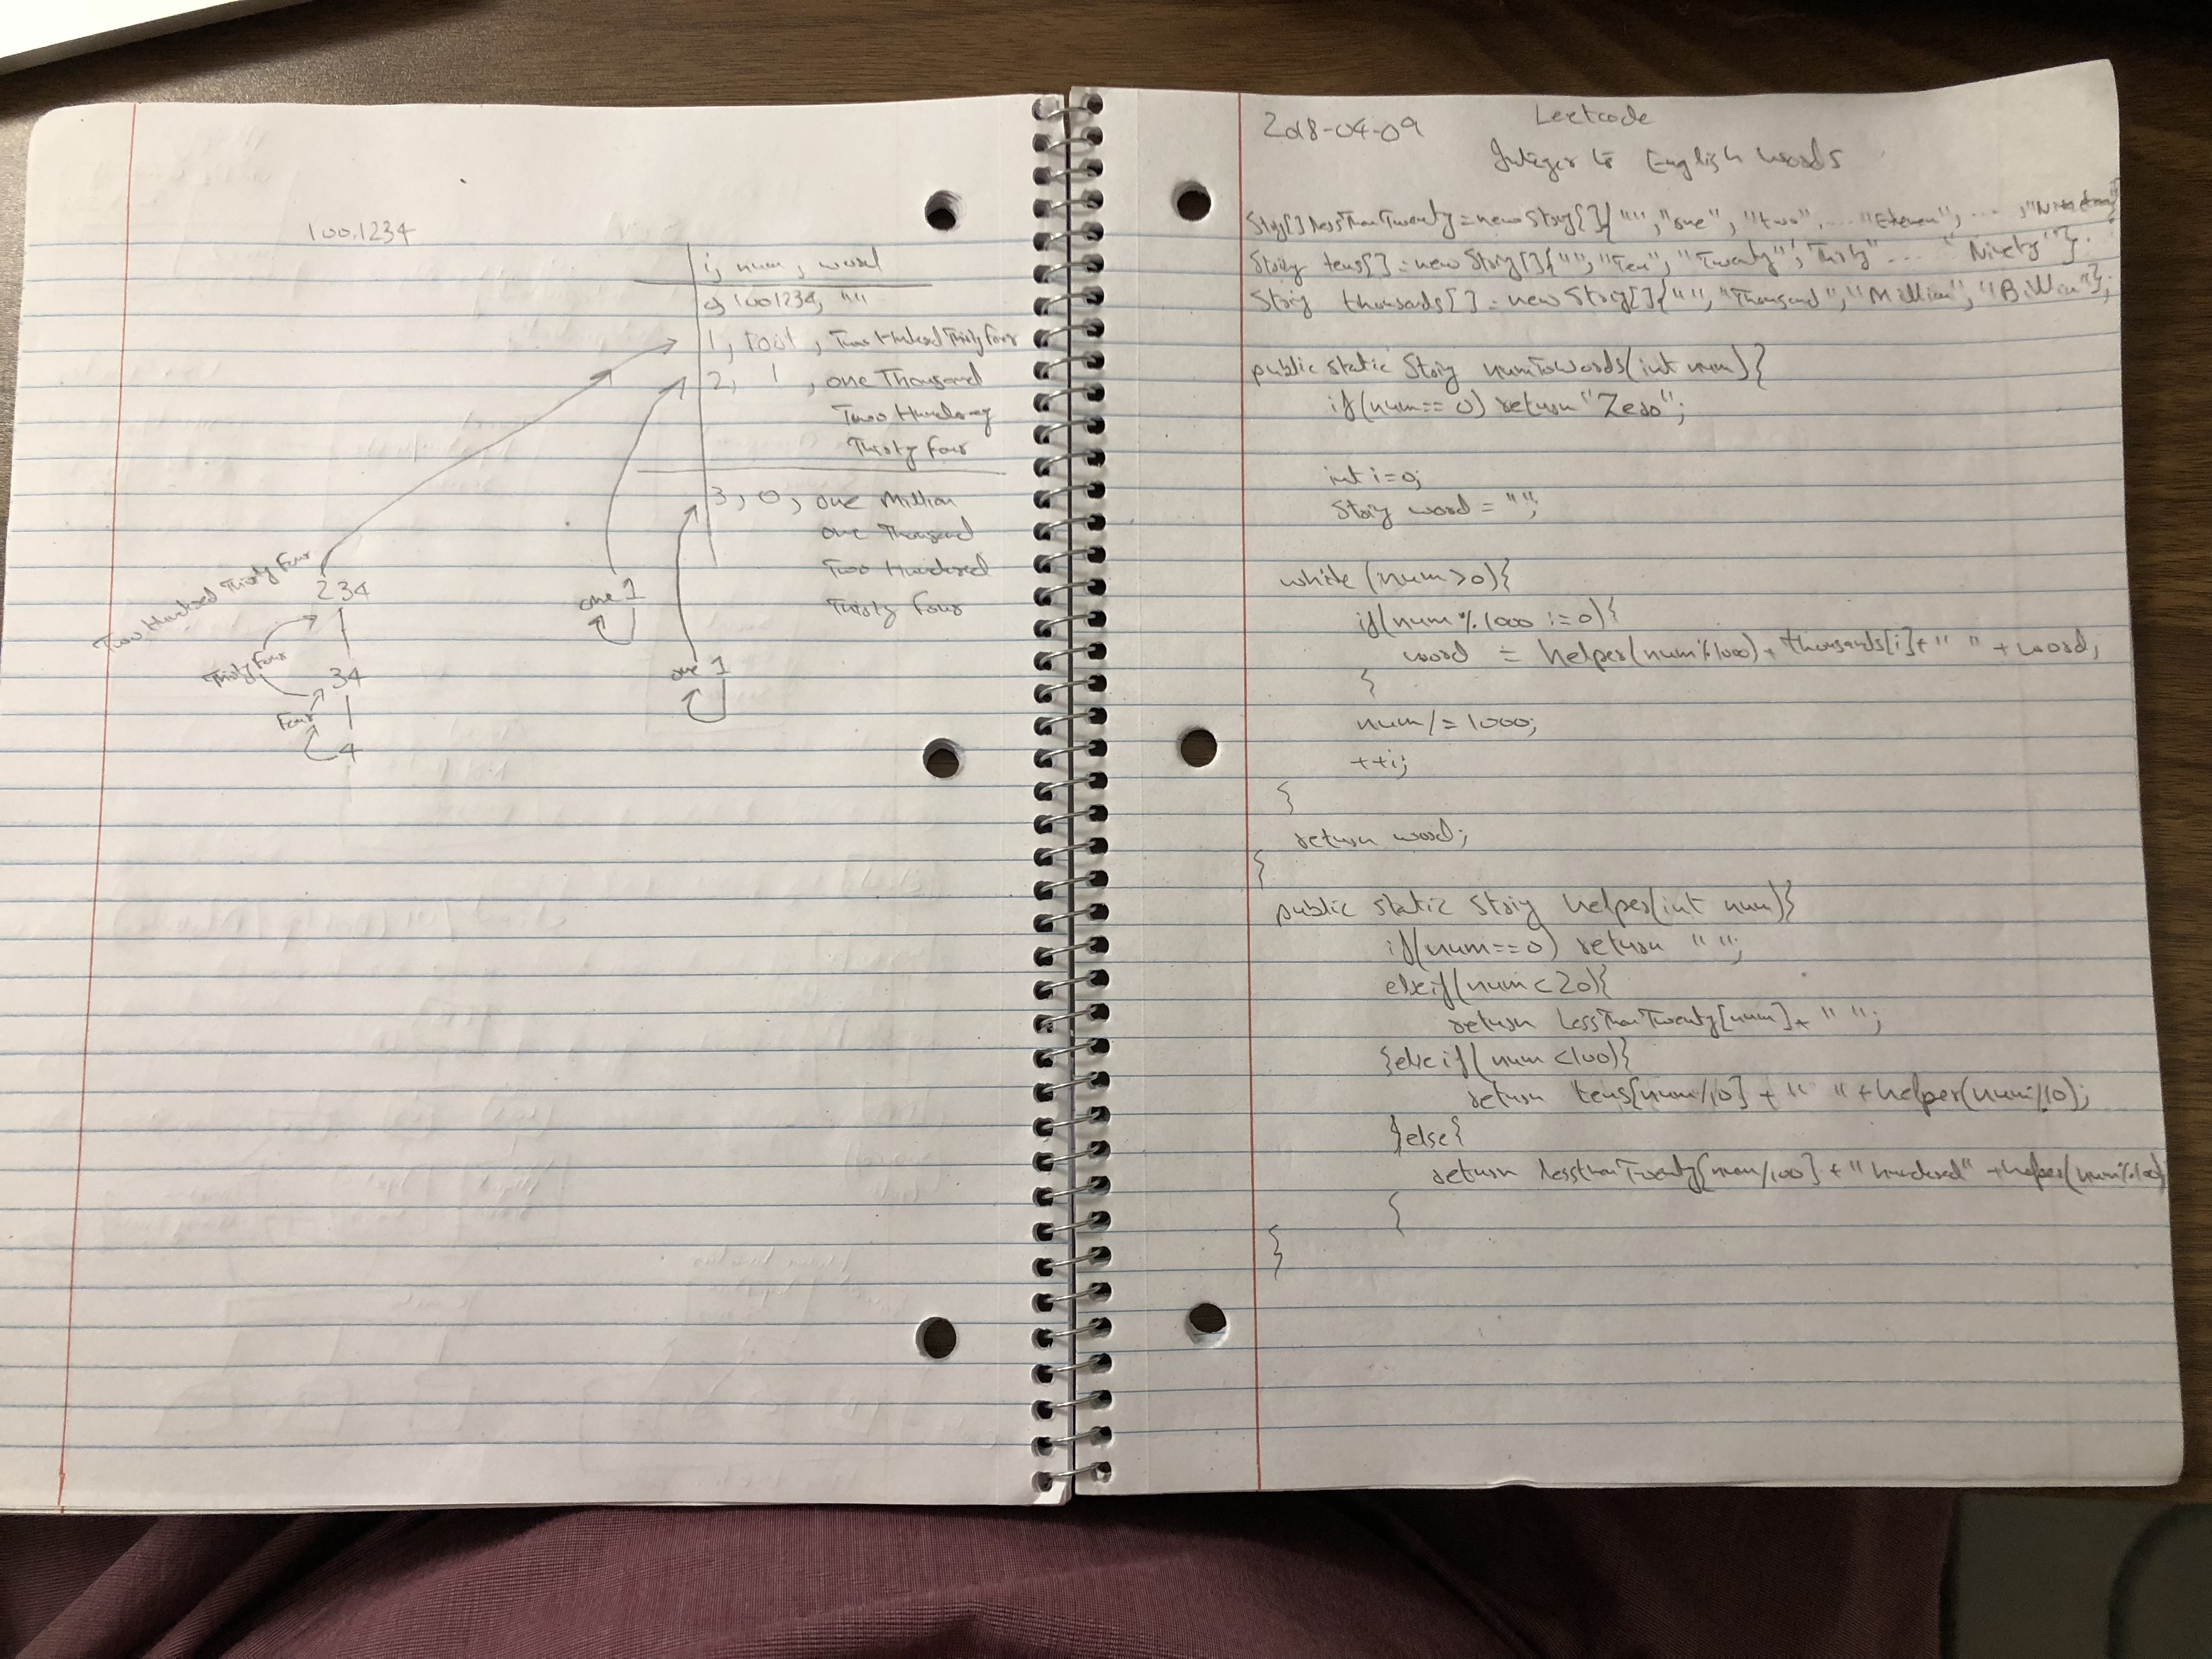 1001234
i, num, word
0, 1001234, ""
1, 1001, Two Hundred Thirty Four
2, 1, one Thousand
Two Hundred
Thirty Four
3, 0, one Million
one Thousand
Two Hundred
Thirty Four
Two Hundred Thirty Four
234
Thirty Four
34
Four
4
one 1
one 1
2018-04-09 Leetcode
Integer to English Words
String[] lessThanTwenty = new String[]{"", "one", "two", ... "Eleven", ... , "Nineteen"}
String tens[] = new String[]{"", "Ten", "Twenty", "Thirty" ... "Ninety"};
String thousands[] = new String[]{"", "Thousand", "Million", "Billion"};
public static String numToWords(int num){
if(num == 0) return "Zero";
int i=0;
String word = "";
while (num>0){
if(num % 1000 != 0){
word = helper(num%1000) + thousands[i] + " " + word;
}
num /= 1000;
++i;
}
return word;
}
public static String helper(int num){
if(num==0) return "";
else if(num < 20){
return lessThanTwenty[num] + " ";
}else if(num <100){
return tens[num/10] + " " + helper(num%10);
}else{
return lessthanTwenty[num/100] + " hundred" + helper(num%100)
}
}